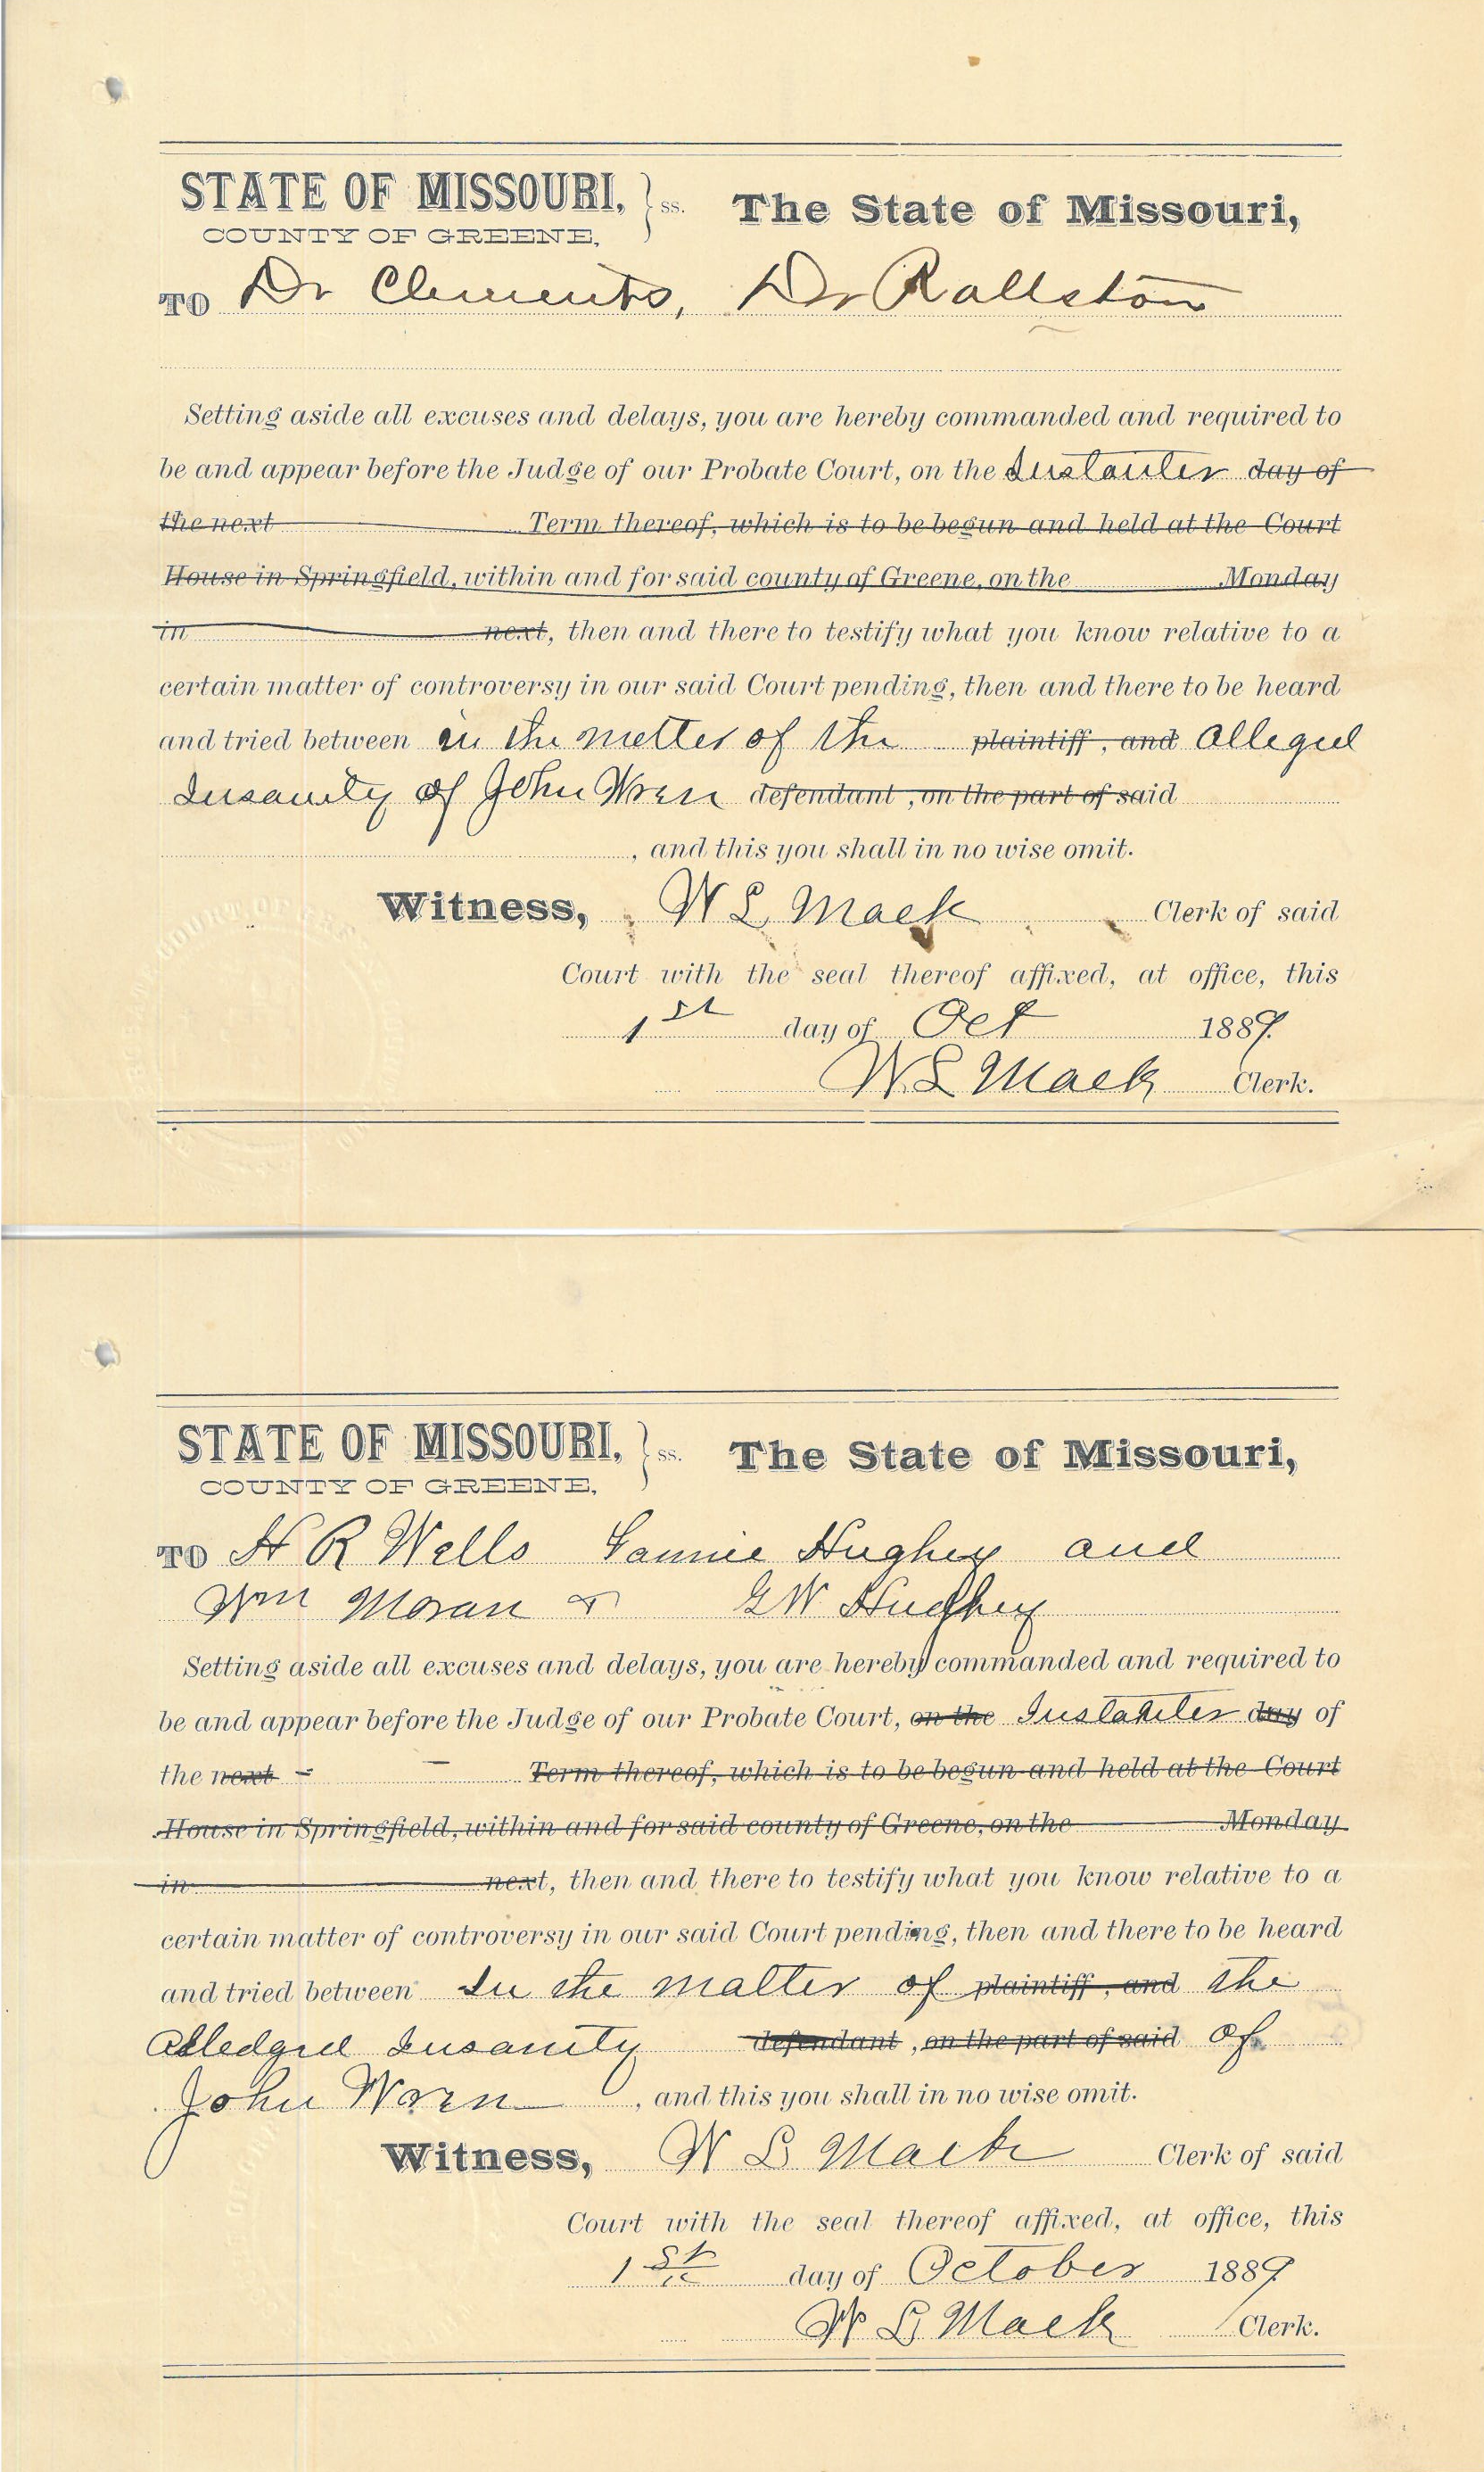 STATE OF MISSOURI, } ss. The State of Missouri,
COUNTY OF GREENE,
TO Dr Clements, Dr Rallston
Setting aside all excuses and delays, you are hereby commanded and required to
be and appear before the Judge of our Probate Court, on the Instanter day of
the next Term thereof, which is to be begun and held at the Court
House in Springfield, within and for said county of Greene, on the Monday
in next, then and there to testify what you know relative to a
certain matter of controversy in our said Court pending, then and there to be heard
and tried between in the matter of the plaintiff, and alleged
Insanity of John Wren defendant, on the part of said
, and this you shall in no wise omit.
Witness, W L Mack Clerk of said
Court with the seal thereof affixed, at office, this
1st day of Oct 1889.
W L Mack Clerk.
STATE OF MISSOURI, } ss. The State of Missouri,
COUNTY OF GREENE,
TO H R Wells Hughey and
Wm Moran & G W Hughey
Setting aside all excuses and delays, you are hereby commanded and required to
be and appear before the Judge of our Probate Court, on the Instanter day of
the next - - Term thereof, which is to be begun and held at the Court
House in Springfield, within and for said county of Greene, on the Monday
in next, then and there to testify what you know relative to a
certain matter of controversy in our said Court pending, then and there to be heard
and tried between In the matter of plaintiff, and the
alledged Insanity defendant, on the part of said of
John Wren , and this you shall in no wise omit.
Witness, W L Mack Clerk of said
Court with the seal thereof affixed, at office, this
1st day of October 1889
W L Mack Clerk.